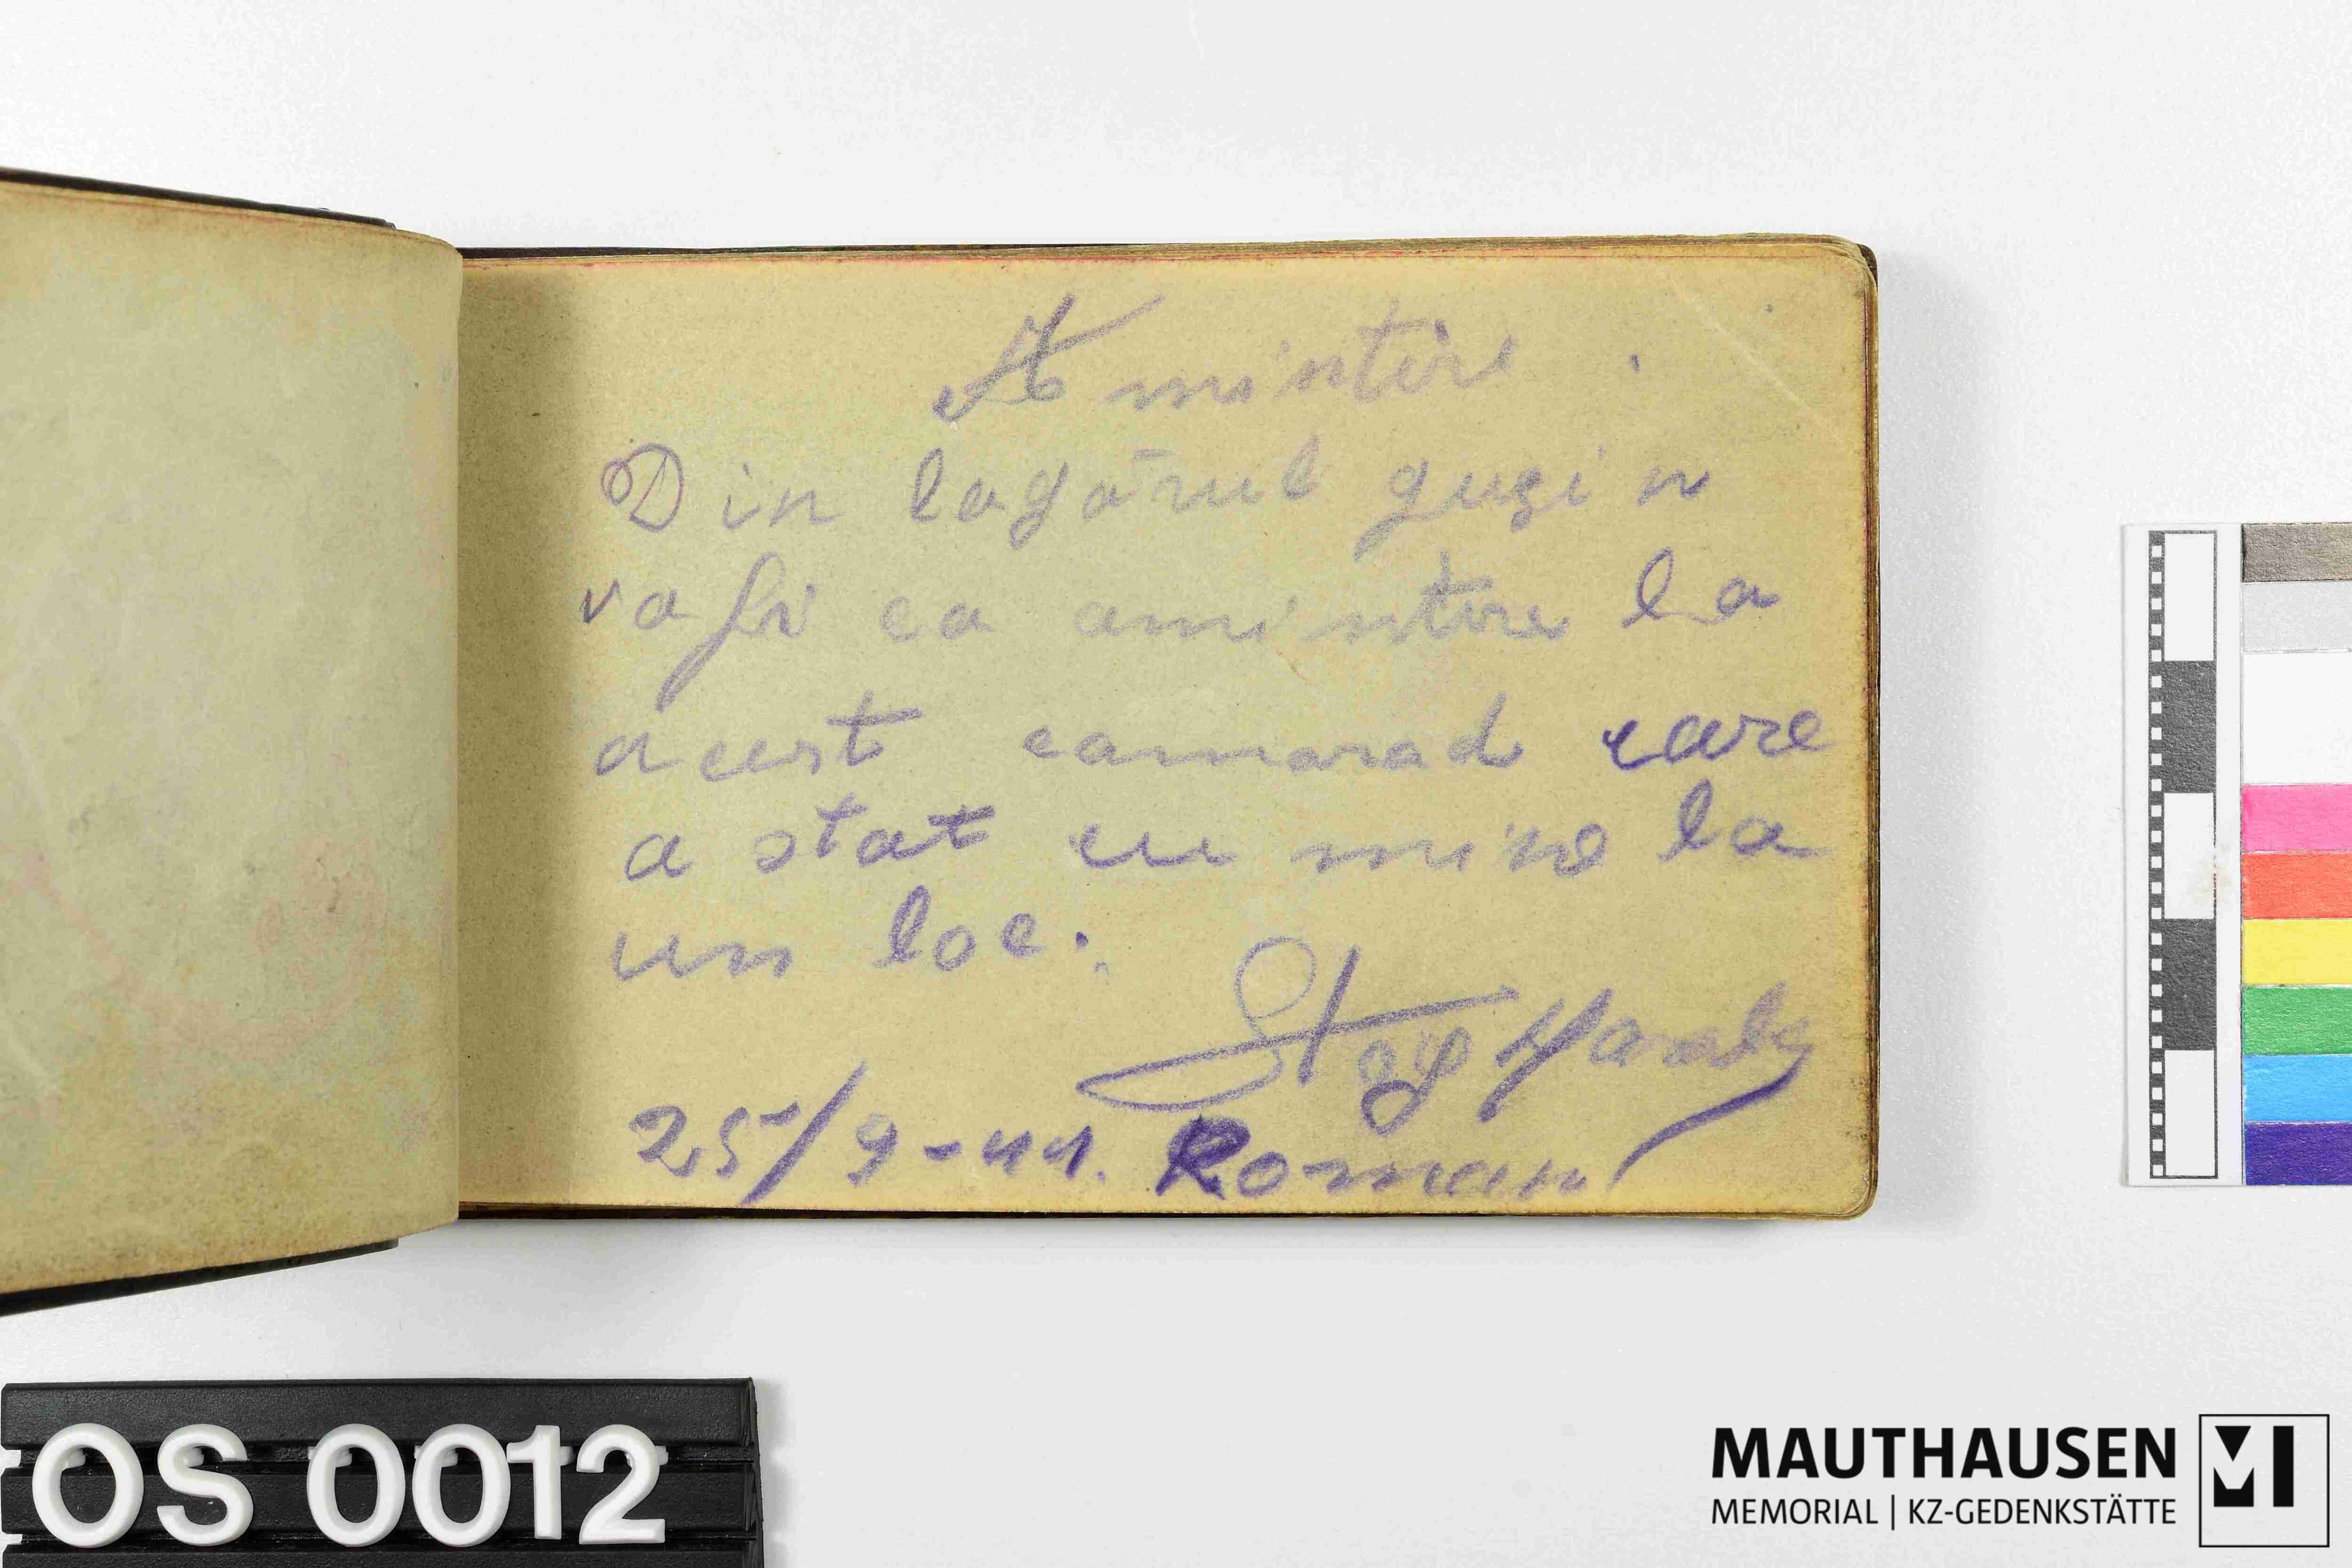 Amintire.
Din lagărul guşin
va fi ca amintire la
acest camarad care
a stat cu mine la
un loc.
25/9-44. Roman
OS 0012
MAUTHAUSEN
MEMORIAL | KZ-GEDENKSTÄTTE